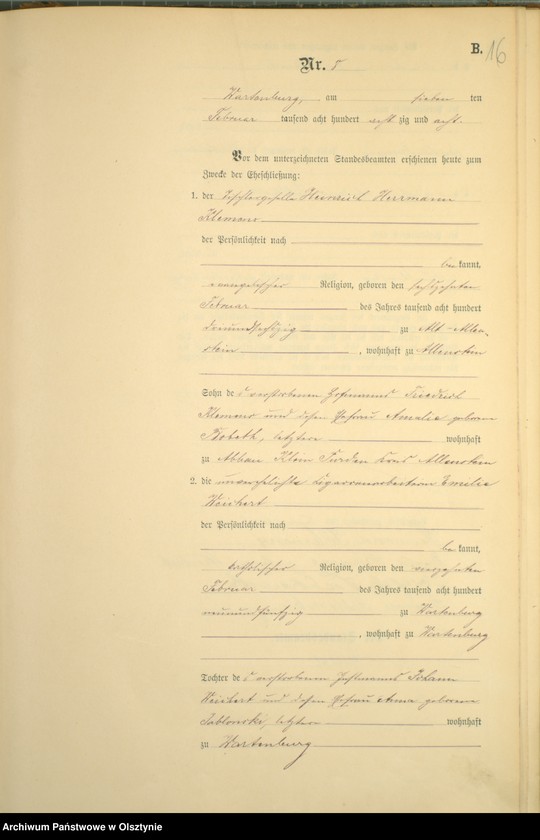 B. 16
Nr. 5
Wartenburg, am sieben ten
Februar tausend acht hundert acht zig und acht.
Vor dem unterzeichneten Standesbeamten erschienen heute zum
Zwecke der Eheschließung:
1. der Heinrich Herrmann
Klemens
der Persönlichkeit nach
be kannt,
evangelischer Religion, geboren den sechszehnten
Februar des Jahres tausend acht hundert
dreiundsechszig zu Alt-Allen-
stein , wohnhaft zu Allenstein
Sohn de s verstorbenen Hofmanns Friedrich
Klemens und dessen Ehefrau Amalie geborene
letztere wohnhaft
zu Abbau Klein Purden Kreis Allenstein
2. die unverehelichte Cigarrenarbeiterin Emelie
Weichert
der Persönlichkeit nach
be kannt,
katholischer Religion, geboren den vierzehnten
Februar des Jahres tausend acht hundert
neunundfünfzig zu Wartenburg
, wohnhaft zu Wartenburg
Tochter de s verstorbenen Instmanns Johann
Weichert und dessen Ehefrau Anna geborene
Jablonski, letztere wohnhaft
zu Wartenburg
Archiwum Państwowe w Olsztynie